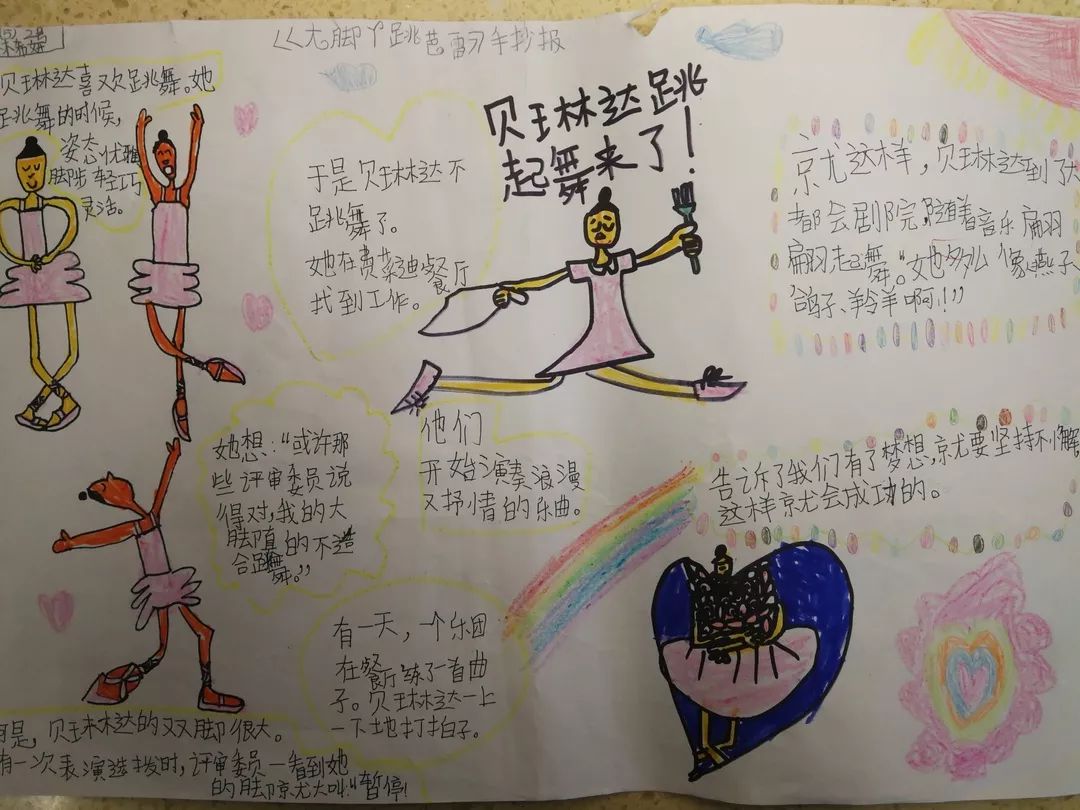 《大脚丫跳芭蕾》手抄报
贝琳达喜欢跳舞。她
跳舞的时候，
姿态优雅
脚步轻巧
灵活。
可是，贝琳达的双脚很大。
有一次表演选拨时，评审委员一看到她
的脚京尤大叫：“暂停！
她想：“或许那
些评审委员说
得对，我的大
脚真的不适
合跳舞。”
于是贝琳达不
跳舞了。
她在费莱迪餐厅
找到工作。
有一天，一个乐团
在餐厅练了一首曲
子。贝琳达一上
一下地打拍子。
他们
开始演奏浪漫
又抒情的乐曲。
贝琳达跳
起舞来了！
京尤这样，贝琳达到了大
都会剧院，随着音乐翩
翩起舞。“她多么像燕子、
鸽子、羚羊啊！”
告诉了我们有了梦想，京尤要坚持不懈，
这样京尤会成功的。